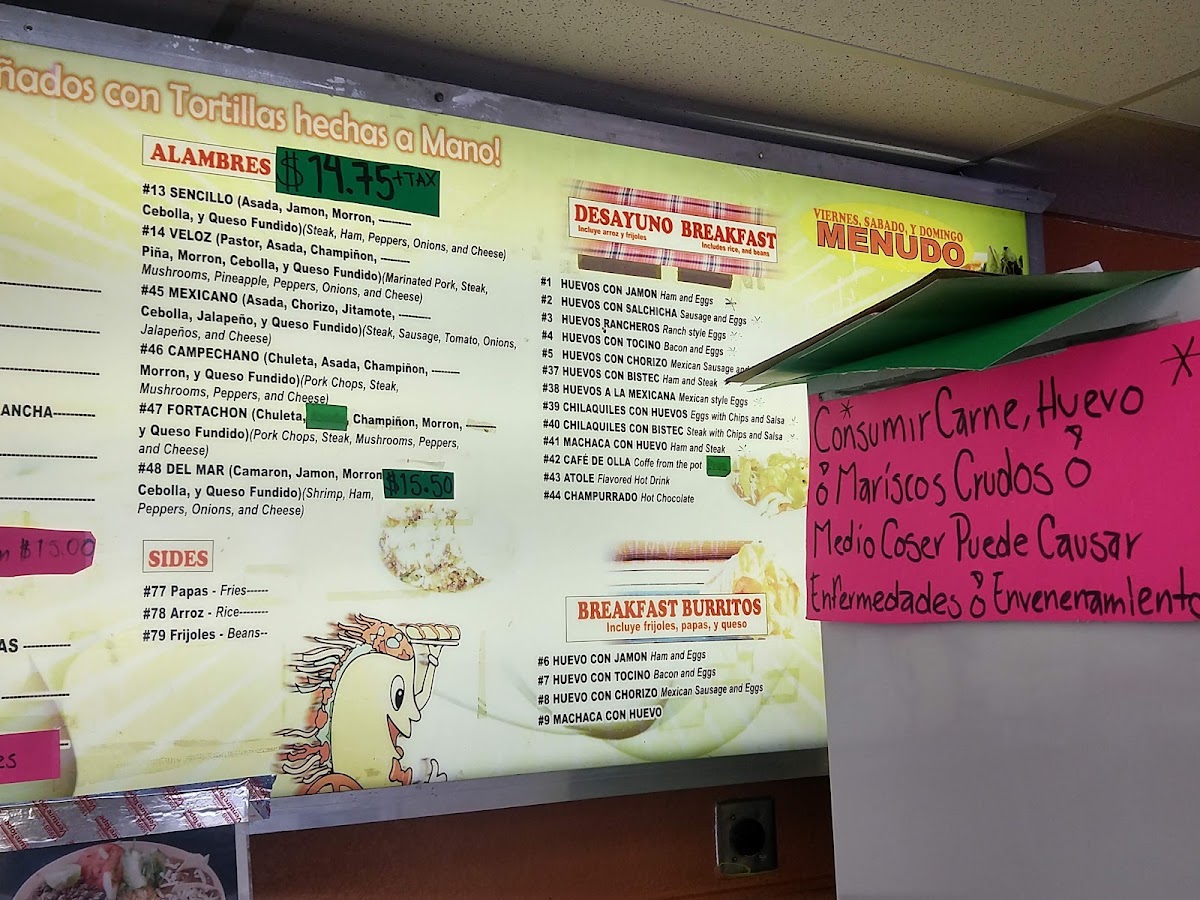 ñados con Tortillas hechas a Mano!
ALAMBRES $14.75 +TAX
#13 SENCILLO (Asada, Jamon, Morron,
Cebolla, y Queso Fundido)(Steak, Ham, Peppers, Onions, and Cheese)
#14 VELOZ (Pastor, Asada, Champiñon,
Piña, Morron, Cebolla, y Queso Fundido)(Marinated Pork, Steak,
Mushrooms, Pineapple, Peppers, Onions, and Cheese)
#45 MEXICANO (Asada, Chorizo, Jitamote,
Cebolla, Jalapeño, y Queso Fundido)(Steak, Sausage, Tomato, Onions,
Jalapeños, and Cheese)
#46 CAMPECHANO (Chuleta, Asada, Champiñon,
Morron, y Queso Fundido)(Pork Chops, Steak,
Mushrooms, Peppers, and Cheese)
#47 FORTACHON (Chuleta, Champiñon, Morron,
y Queso Fundido)(Pork Chops, Steak, Mushrooms, Peppers,
and Cheese)
#48 DEL MAR (Camaron, Jamon, Morron $15.50
Cebolla, y Queso Fundido)(Shrimp, Ham,
Peppers, Onions, and Cheese)
SIDES
#77 Papas - Fries------
#78 Arroz - Rice--------
#79 Frijoles - Beans--
ANCHA----------
$15.00
AS ----------
es
DESAYUNO BREAKFAST
Incluye arroz y frijoles Includes rice, and beans
#1 HUEVOS CON JAMON Ham and Eggs *
#2 HUEVOS CON SALCHICHA Sausage and Eggs *
#3 HUEVOS RANCHEROS Ranch style Eggs *
#4 HUEVOS CON TOCINO Bacon and Eggs *
#5 HUEVOS CON CHORIZO Mexican Sausage and
#37 HUEVOS CON BISTEC Ham and Steak
#38 HUEVOS A LA MEXICANA Mexican style Eggs *
#39 CHILAQUILES CON HUEVOS Eggs with Chips and Salsa *
#40 CHILAQUILES CON BISTEC Steak with Chips and Salsa *
#41 MACHACA CON HUEVO Ham and Steak *
#42 CAFÉ DE OLLA Coffe from the pot
#43 ATOLE Flavored Hot Drink
#44 CHAMPURRADO Hot Chocolate
BREAKFAST BURRITOS
Incluye frijoles, papas, y queso
#6 HUEVO CON JAMON Ham and Eggs
#7 HUEVO CON TOCINO Bacon and Eggs
#8 HUEVO CON CHORIZO Mexican Sausage and Eggs
#9 MACHACA CON HUEVO
VIERNES, SABADO, Y DOMINGO
MENUDO
* Consumir Carne, Huevo *
ó Mariscos Crudos ó
Medio Coser Puede Causar
Enfermedades ó Envenenamiento